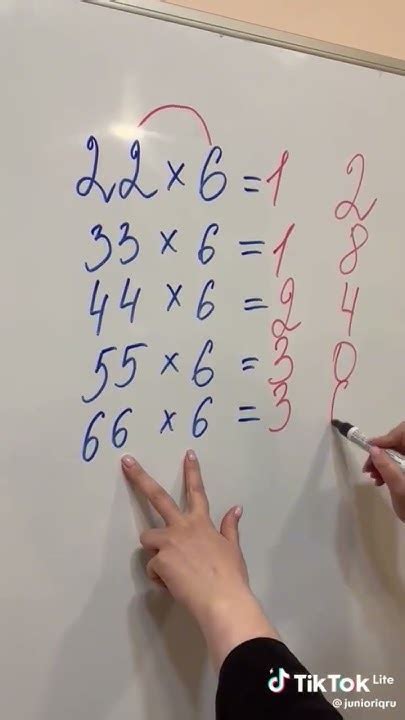 22 × 6 = 1 2
33 × 6 = 1 8
44 × 6 = 2 4
55 × 6 = 3 0
66 × 6 = 3
TikTok Lite
@junioriqru